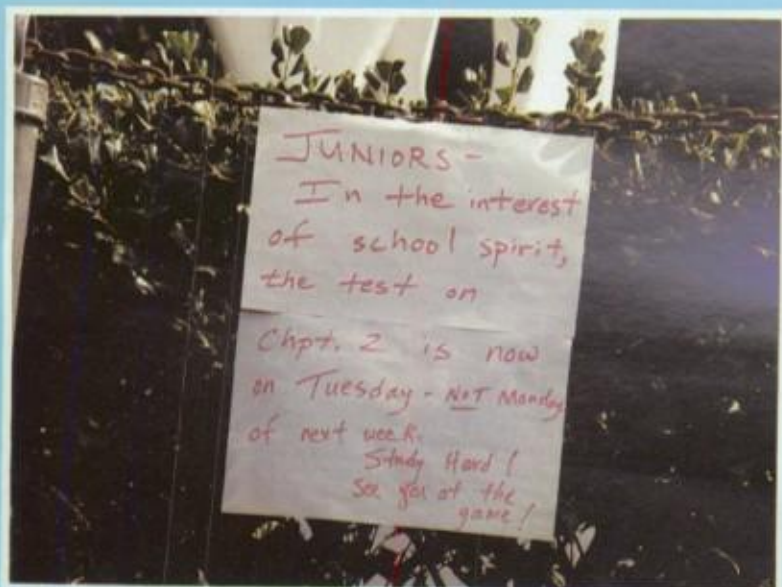 JUNIORS -
In the interest
of school spirit,
the test on
Chpt. 2 is now
on Tuesday - NOT Monday
of next week.
Study Hard!
See you at the
game!